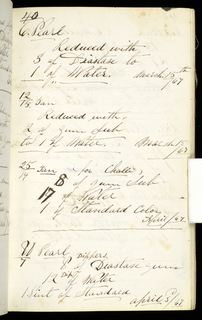 40
C Pearl
Reduced with
3 of Diastase to
1 of Water. March 15th
/67
12/15 Tan
Reduced with
2 of Gum Sub
to 1 of Water. March 15
/67
25/14 Tan for Challi
8 of Gum Sub
17 of Water
1 of Standard Color
April /67
Pearl
8 of Diastase Gum
12 of Water
1 of Standard
April 5/67